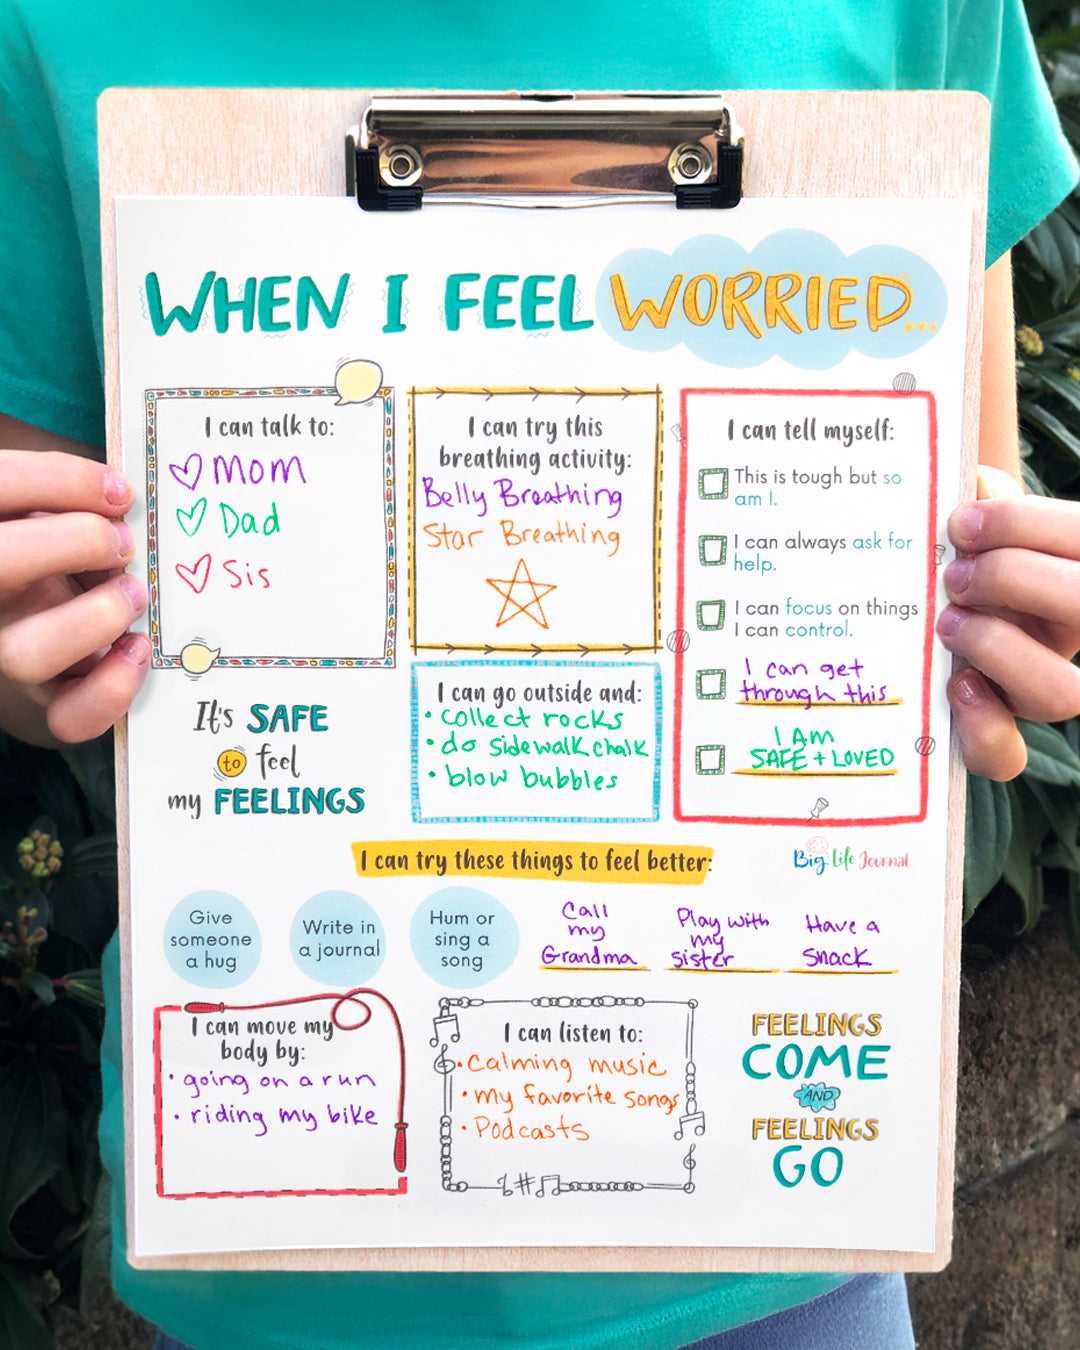 WHEN I FEEL WORRIED...
I can talk to:
Mom
Dad
Sis
I can try this
breathing activity:
Belly Breathing
Star Breathing
I can tell myself:
This is tough but so
am I.
I can always ask for
help.
I can focus on things
I can control.
I can get
through this
I AM
SAFE + LOVED
It's SAFE
to feel
my FEELINGS
I can go outside and:
• collect rocks
• do sidewalk chalk
• blow bubbles
Big Life Journal
I can try these things to feel better:
Give
someone
a hug
Write in
a journal
Hum or
sing a
song
Call
my
Grandma
Play with
my
sister
Have a
snack
I can move my
body by:
• going on a run
• riding my bike
I can listen to:
• calming music
• my favorite songs
• Podcasts
FEELINGS
COME
AND
FEELINGS
GO